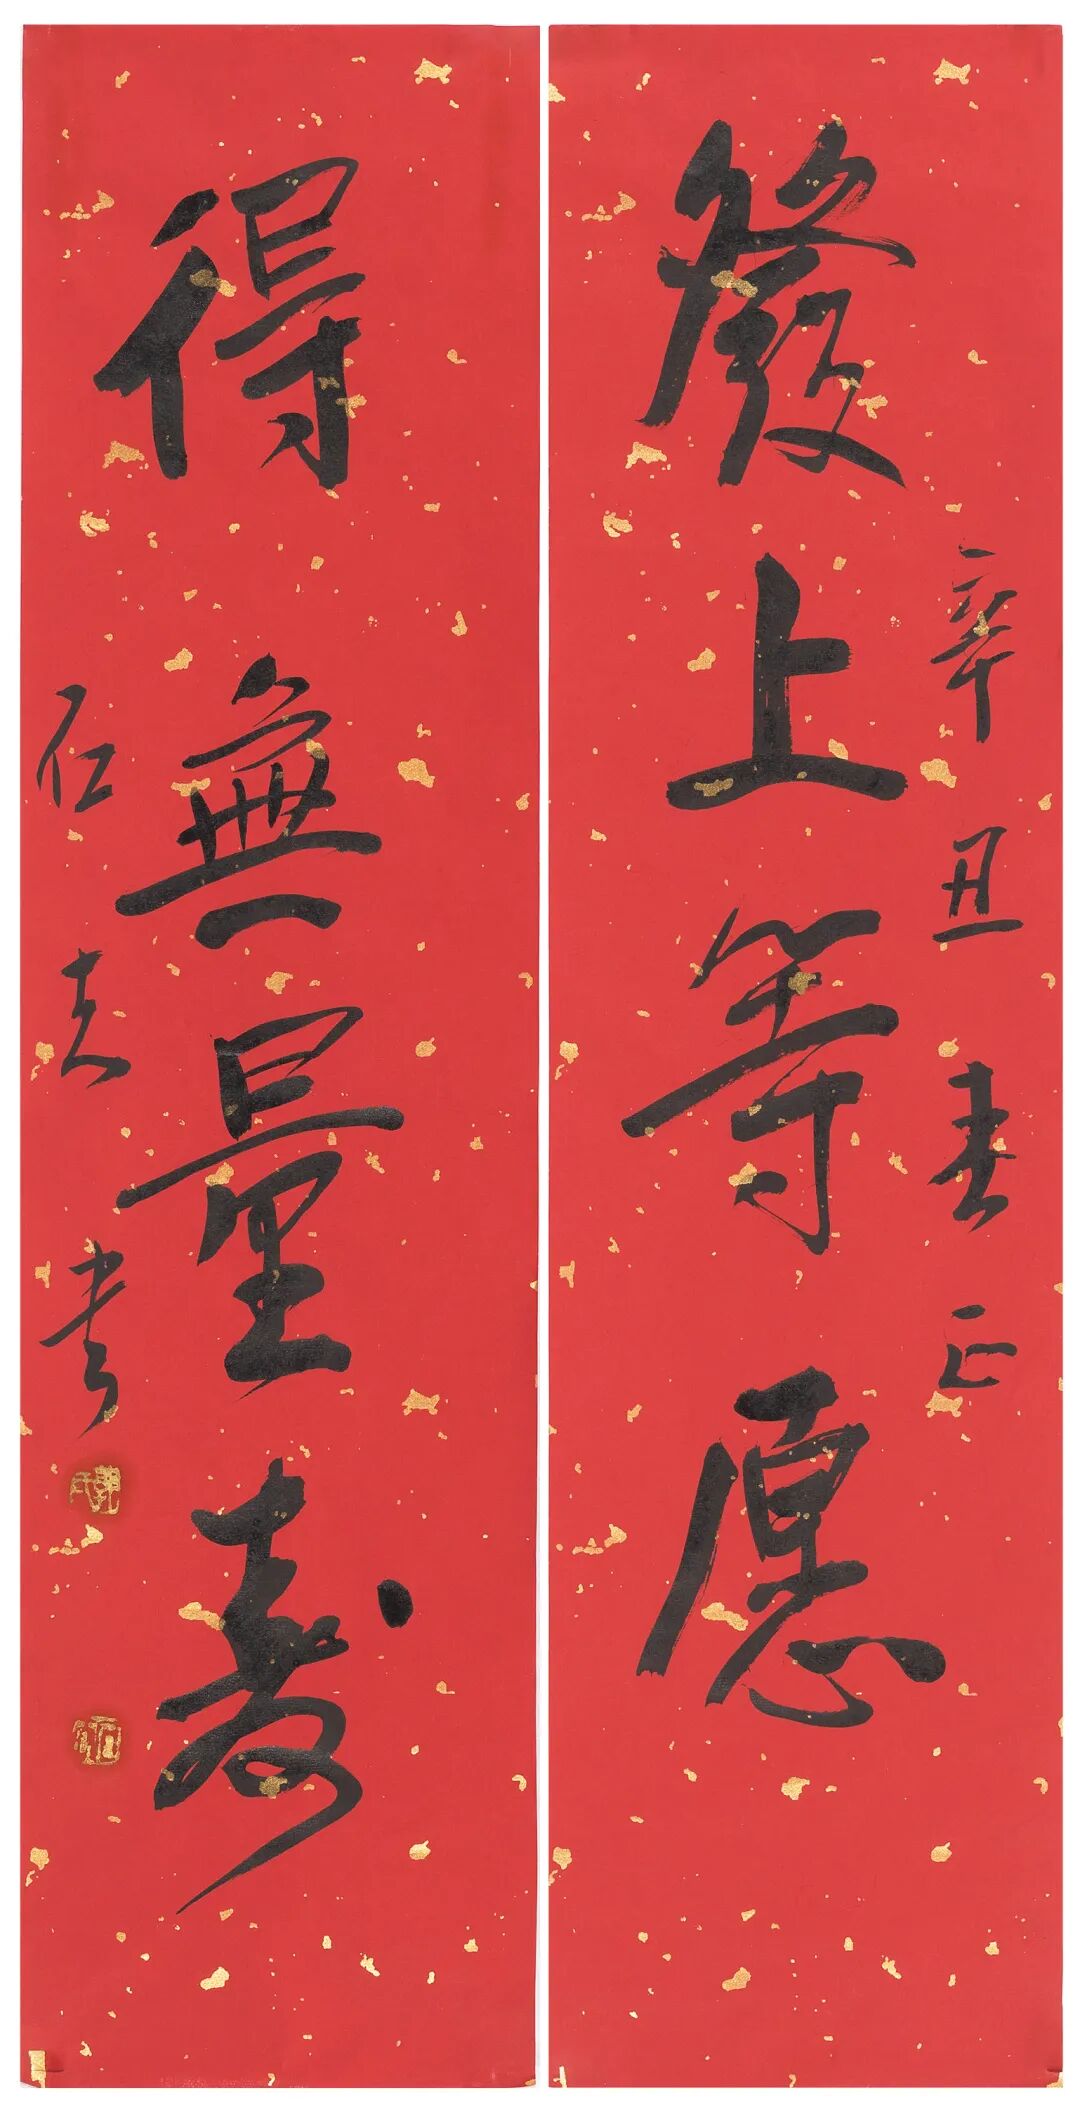 發上等愿
辛丑春正
得無量壽
書